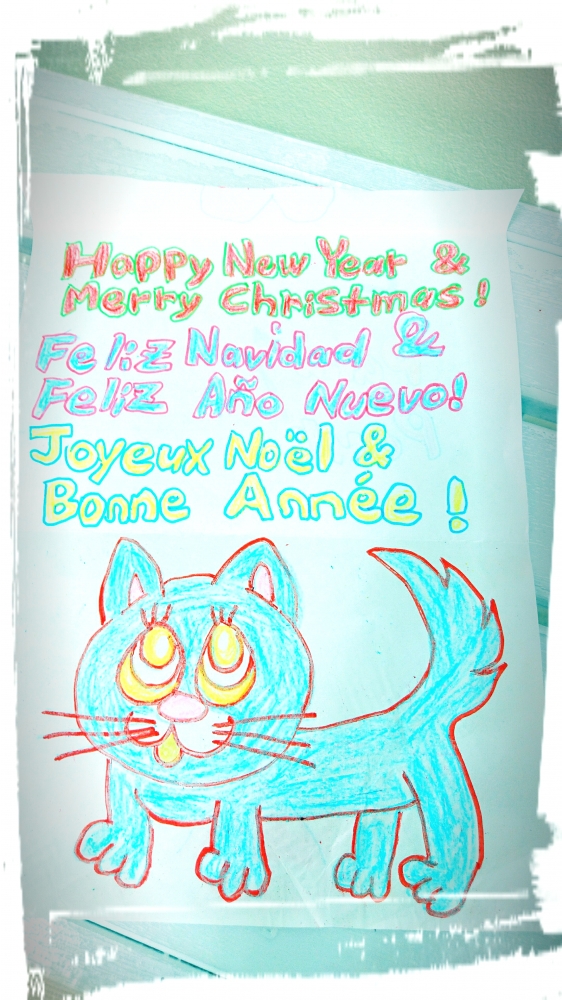 Happy New Year &
Merry Christmas!
Feliz Navidad &
Feliz Año Nuevo!
Joyeux Noël &
Bonne Année !